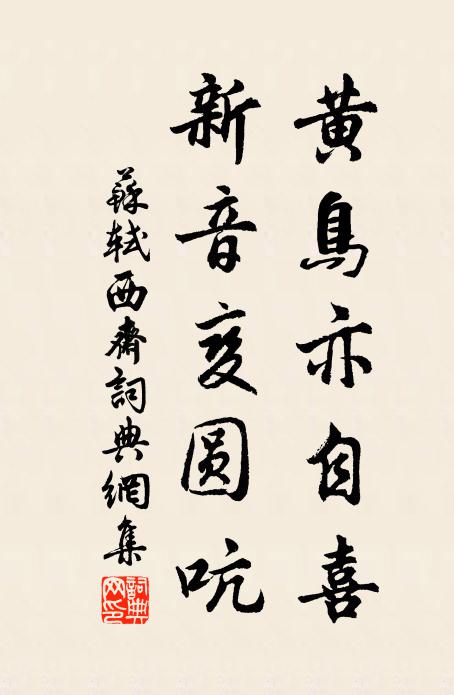 黄鳥亦自喜
新音變圓吭
蘇軾西齋詞典網集
詞典網印